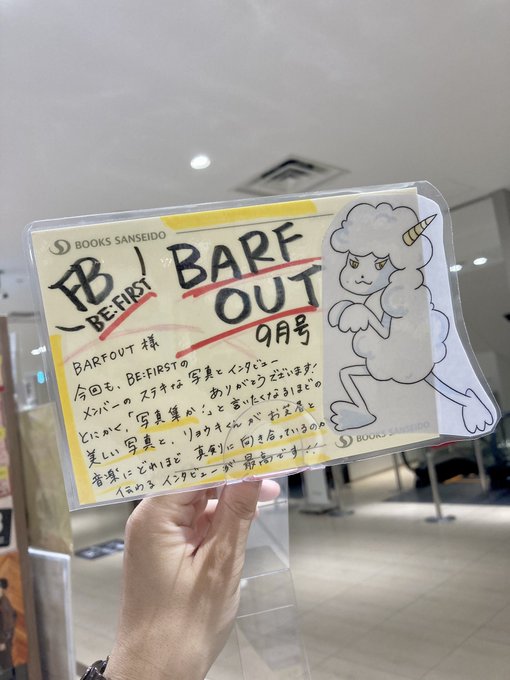 BOOKS SANSEIDO
FB
BE:FIRST
BARF
OUT
9月号
BARFOUT 様
今回も、BE:FIRSTの
メンバーの ステキな 写真と インタビュー
ありがとうございます!
とにかく、「写真集か!」と言いたくなるほどの
美しい写真と、リョウキくんが お芝居と
音楽に どれほど 真剣に 向き合っているのか
伝わる インタビューが 最高です…!
BOOKS SANSEIDO